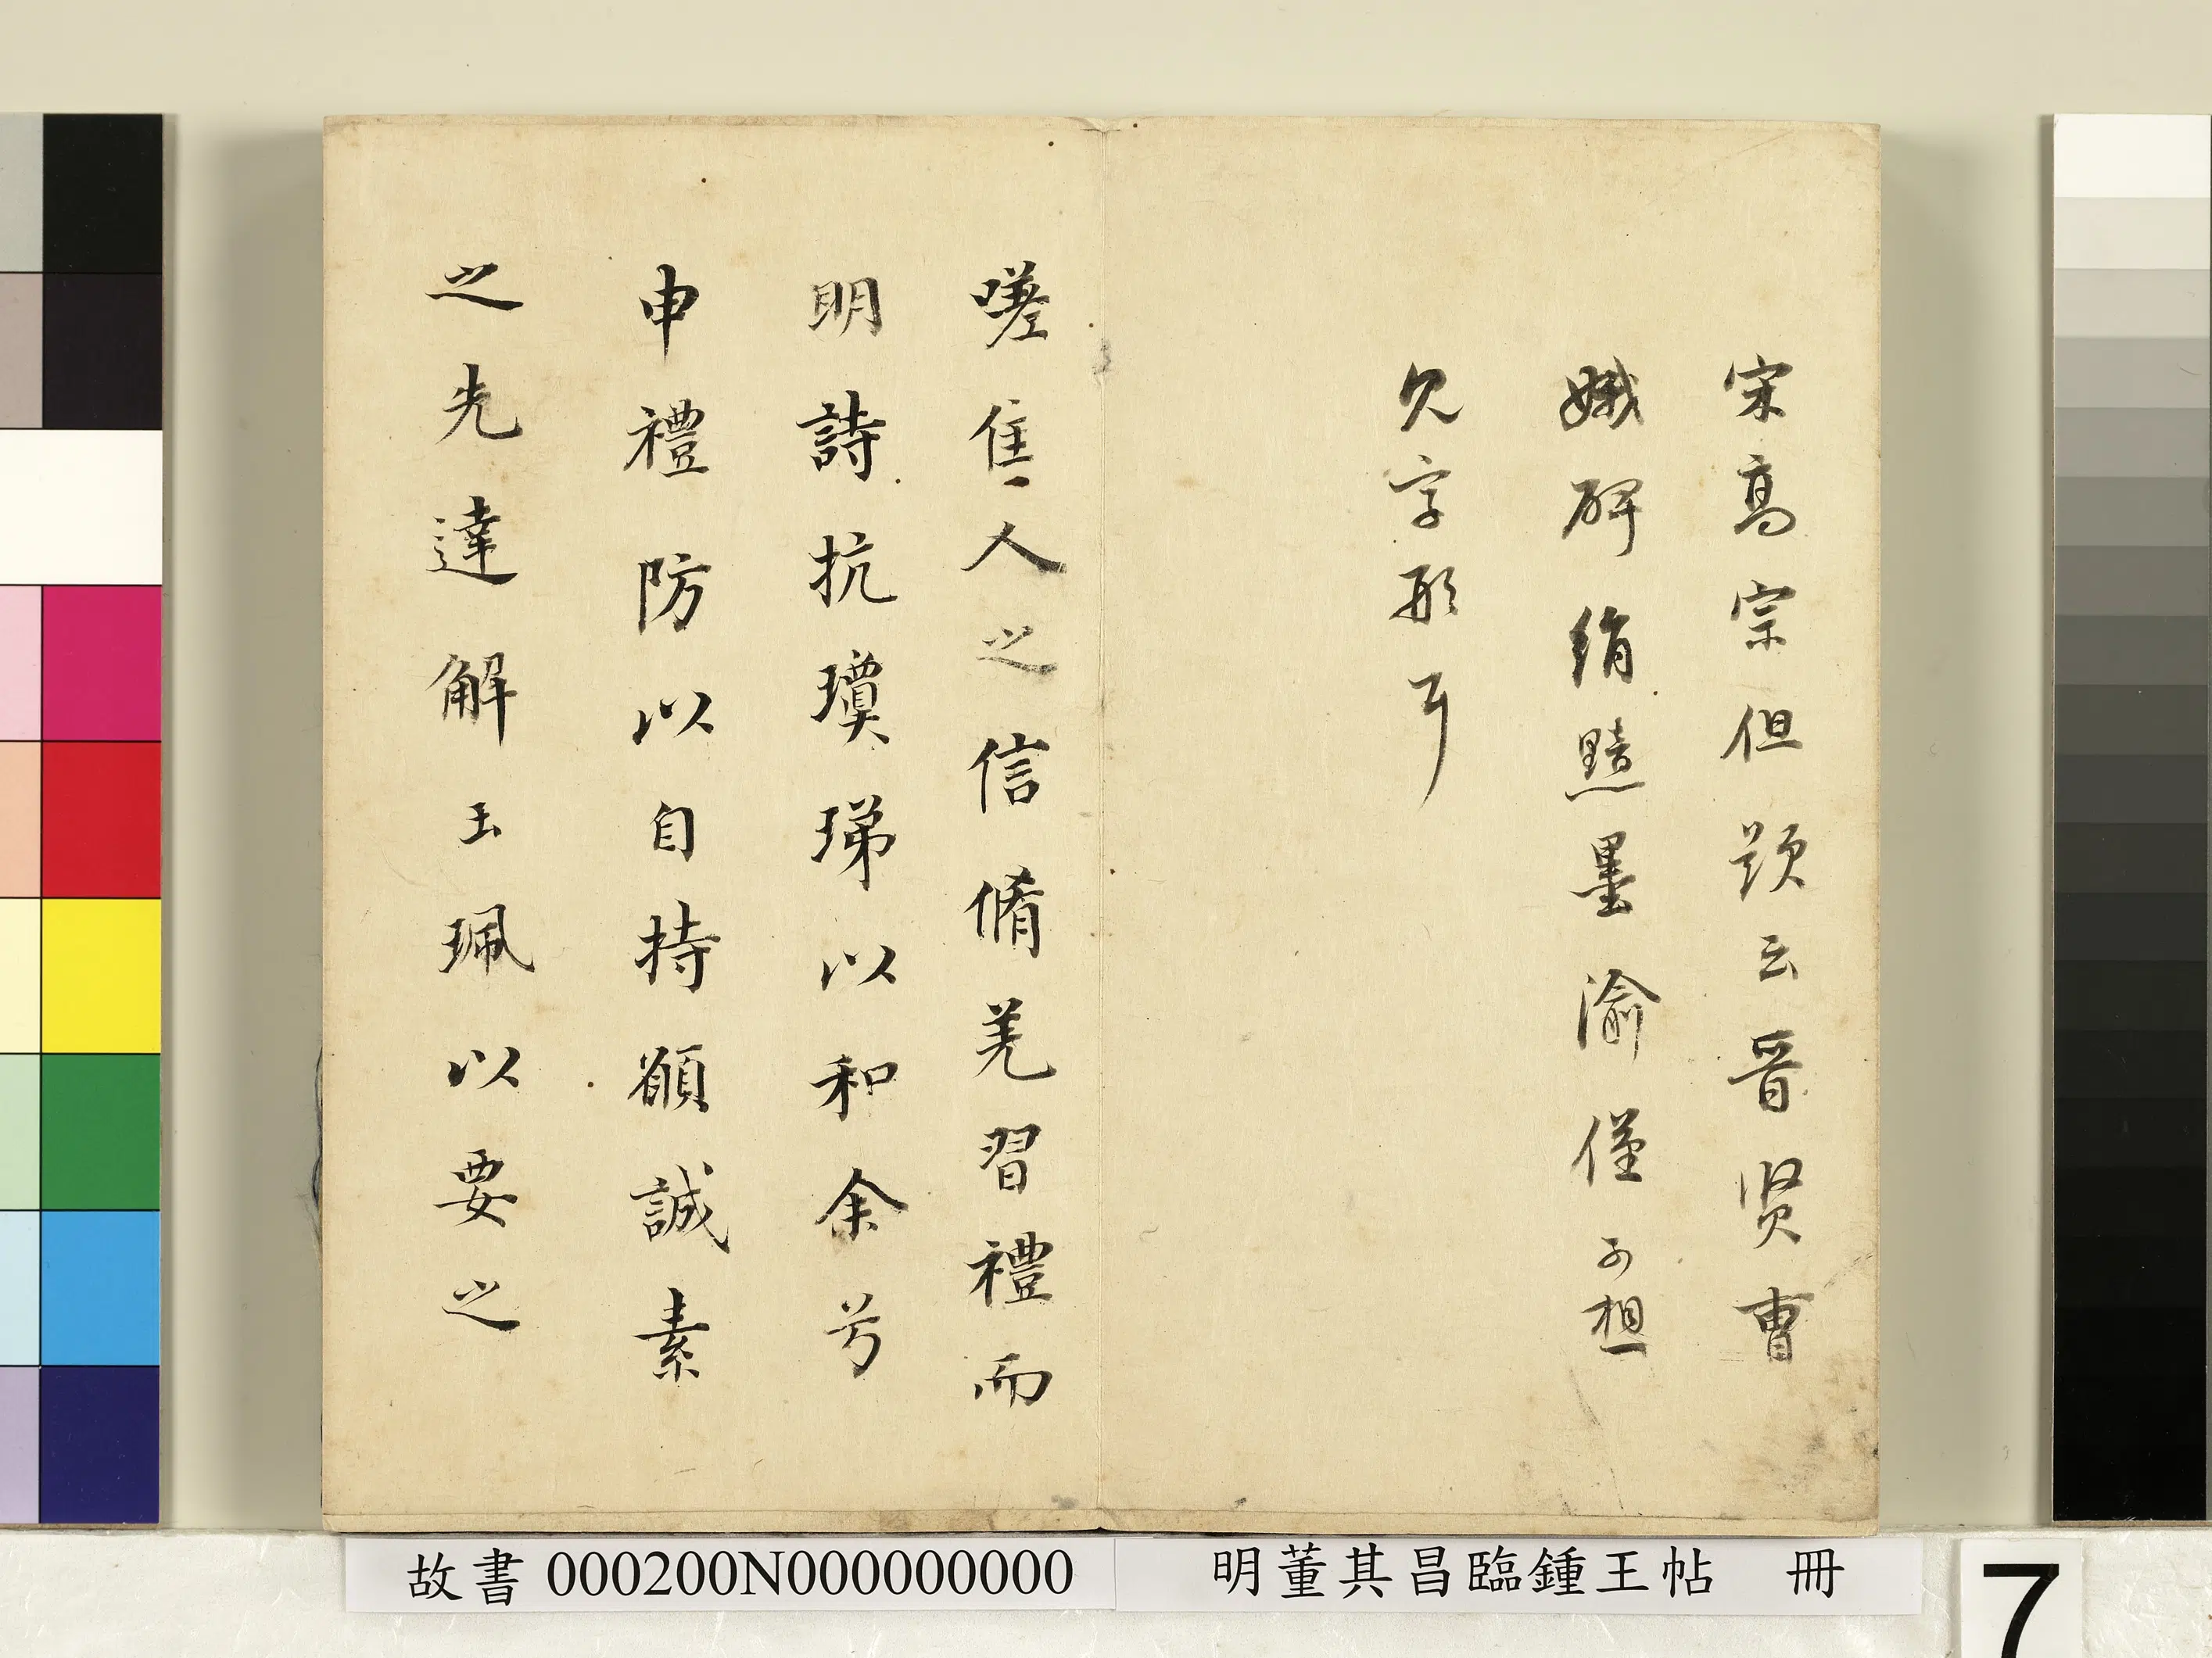 宋高宗但題云晉賢曹
娥碑絹黯墨渝僅可想
見字形耳
嗟佳人之信脩羌習禮而
明詩抗瓊珶以和余兮
申禮防以自持願誠素
之先達解玉珮以要之
故書 000200N000000000
明董其昌臨鍾王帖 冊
7